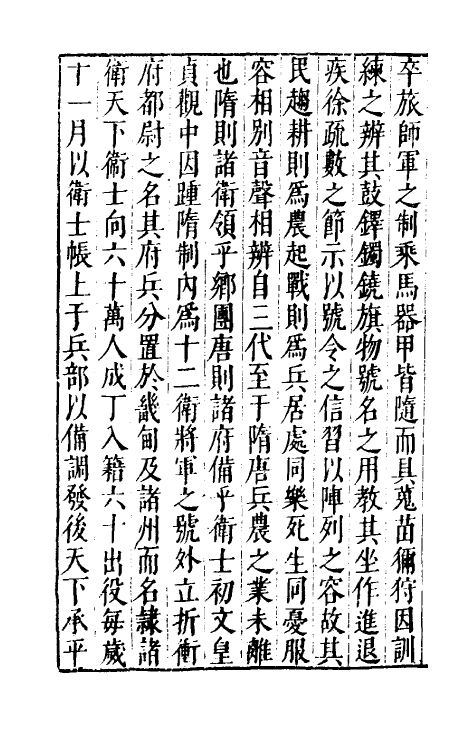 卒旅師軍之制乘馬器甲皆隨而具蒐苗獮狩因訓
練之辨其鼓鐸鐲鐃旗物號名之用教其坐作進退
疾徐疏數之節示以號令之信習以陣列之容故其
民趨耕則爲農起戰則爲兵居處同樂死生同憂服
容相別音聲相辨自三代至于隋唐兵農之業未離
也隋則諸衛領乎鄉團唐則諸府備乎衛士初文皇
貞觀中因踵隋制內爲十二衛將軍之號外立折衝
府都尉之名其府兵分置於畿甸及諸州而名隷諸
衛天下衛士向六十萬人成丁入籍六十出役每歲
十一月以衛士帳上于兵部以備調發後天下承平